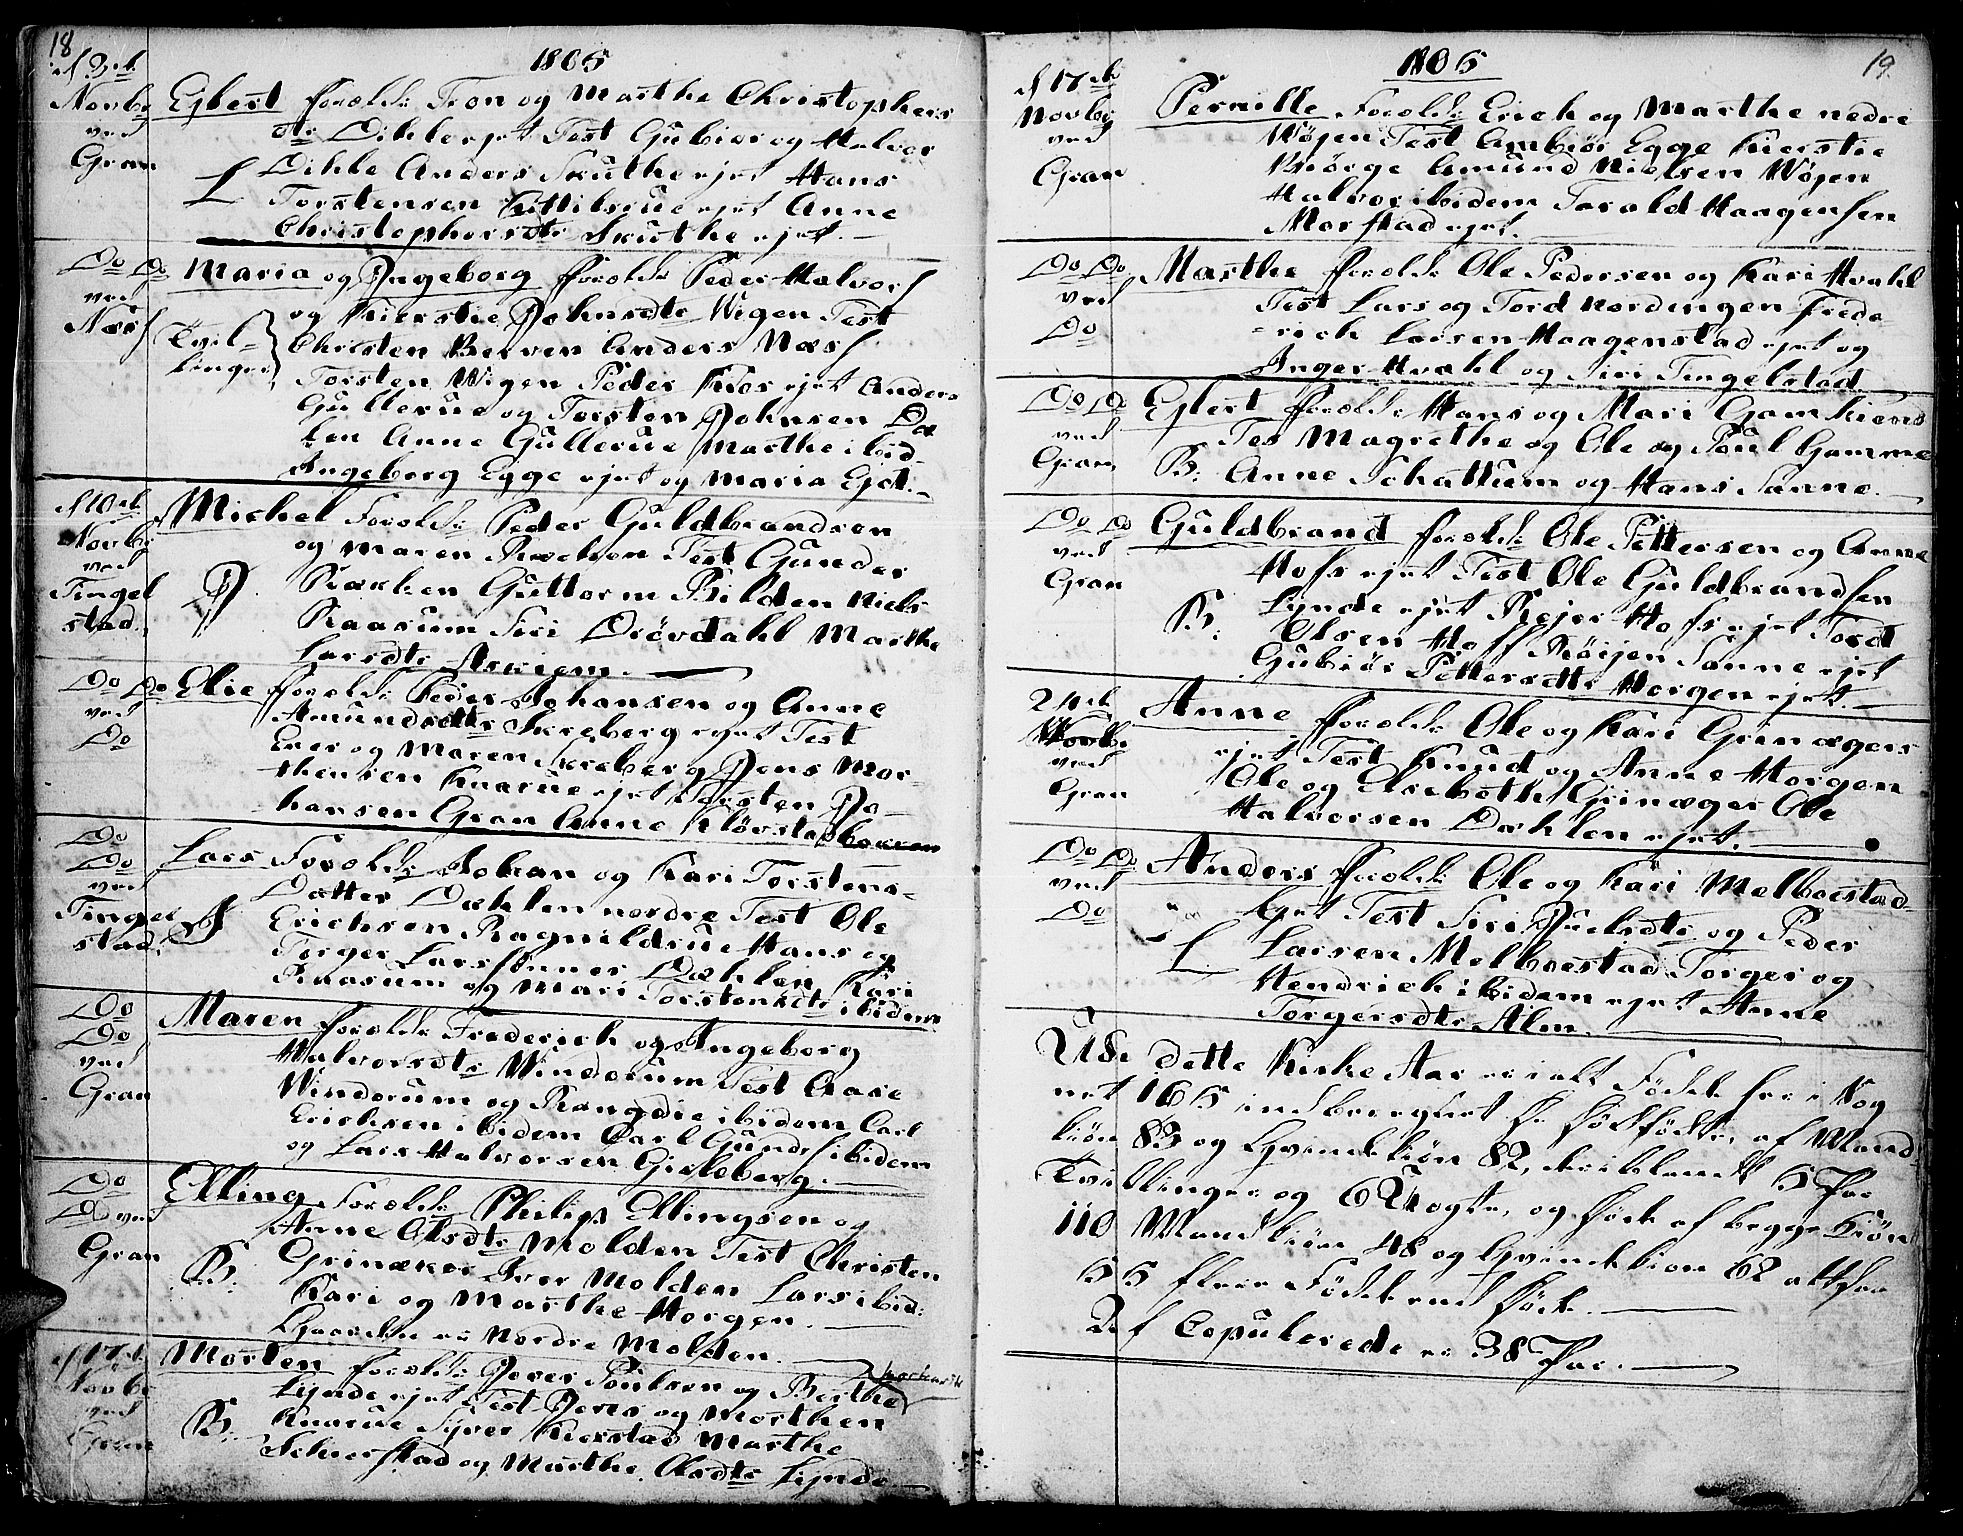 18
1805
d 3die
Novbr
ved
Gran
Egbert Forældr Tron og Marthe Christophers
dtr Dihle ejet Test Gubiør og Halvor
Dihle Anders Skuthe ejet Hans
Torstensen Kittilsrue ejet Anne
Christophersdtr Skuthe ejet.
Do Do
ved
Næss
Tvil-
linger
Maria og Ingeborg Forældr Peder Halvors
og Kierstie Johnsdtr Wigen Test
Christen Berven Anders Næss
Torsten Wigen Peder Kiør ejet Anders
Gullerue og Torsten Johnsen Dæ
len Anne Gullerue Marthe ibid
Ingeborg Egge ejet og Maria Ejet.
d 10de
Novbr
ved
Tingel
stad.
Michel Forældr Peder Guldbrandsen
og Maren Test Gunder
Rækken Guttorm Bilden Niels
Raasum Siri Drövdahl Marthe
Larsdtr Askiem.
Do Do
ved
Do
Elie Forældr Peder Johansen og Anne
Amundsdttr Skreberg ejet Test
Even og Maren Skreberg Jens Mor-
thensen Knarue ejet Torsten Jo-
hansen Gran Anne Kløvstadbraaten
Do
Do
ved
Tingel
stad.
Lars Forældr Johan og Kari Torstens-
Datter Dæhlen nordre Test Ole
Erichsen Ragnildrue Hans og
Torger Larssønner Dæhlen Kari
Raasum og Mari Torstensdtr ibidem
Do
Do
ved
Gran
Maren Forældr Frederich og Ingeborg
Halvorsdtr Windorum Test Aase
Windorum og Rangdie ibidem Carl
Erichsen ibidem Carl Gunds ibidem
og Lars Halvorsen Gickleberg.
Do
D ved
Gran
Elling Forældr Philip Ellingsen og
Anne Olsdtr Molden Test Christen
B. Grinaker Iver Molden Lars ibid:
Kari og Marthe Horgen.
Gaarden er Nordre Molden.
d 17de
Novbr
ved
Gran
Morten Forældr Iver Poulsen og Berthe
Lynde ejet Test Jens og Morthen
B. Knarue Syver Kierstad Marthe
Schierstad og Marthe Olsdtr Lynde
1805
19.
d 17de
Novbr
ved
Gran
Pernille Forældr Erich og Marthe nedre
Wøjen Test Ambiør Egge Kierstie
Biørge Amund Nielsen Wøjen
Halvor ibidem Torald Haagensen
Morstad ejet.
Do Do
ved
Do
Marthe Forældr Ole Pedersen og Kari Hvahl
Test Lars og Tord Nordengen Frede-
rich Larsen Haagenstad ejet og
Inger Hvahl og Siri Tingelstad
Do Do
ved
Gran
Egbert Forældr Hans og Mari Gamkiens
Tes Magrethe og Ole og Poul Gamme
B. Anne Schattum og Hans Sanne.
Do Do
ved
Gran
Guldbrand Forældr Ole Pettersen og Anne
Hofs ejet Test Ole Guldbrandsen
B: Lynde ejet Rejer Hofs ejet Tord
Olsen Hoff Röijen Sanne ejet
Gubiør Pettersdtr Horgen ejet.
24de
Novbr
ved
Gran
Anne Forældr Ole og Kari Grinagers
ejet Test Knud og Anne Horgen
Ole og Elsebeth Grinager Ole
Halvorsen Dæhlen ejet.
Do Do
ved
Do
Anders Forældr Ole og Kari Melboestad-
Ejet Test Siri Juelsdtr og Peder
L. Larsen Melboestad Torger og
Hendrich ibidem ejet Anne
Torgersdtr Alm.
Udi dette Kirke Aar er i alt Födde her i Sog
net 165 indberegnet Dødfødte, af Mand-
kiön 83 og Qvindekiön 82, deriblandt 5 Par
Tvillinger og 6 Uægte, og Døde af begge Kiön
110 Mandkiön 48 og Qvindekiön 62 altsaa
55 flere Födde end Døde.
Af Copulerede er 38 Par.